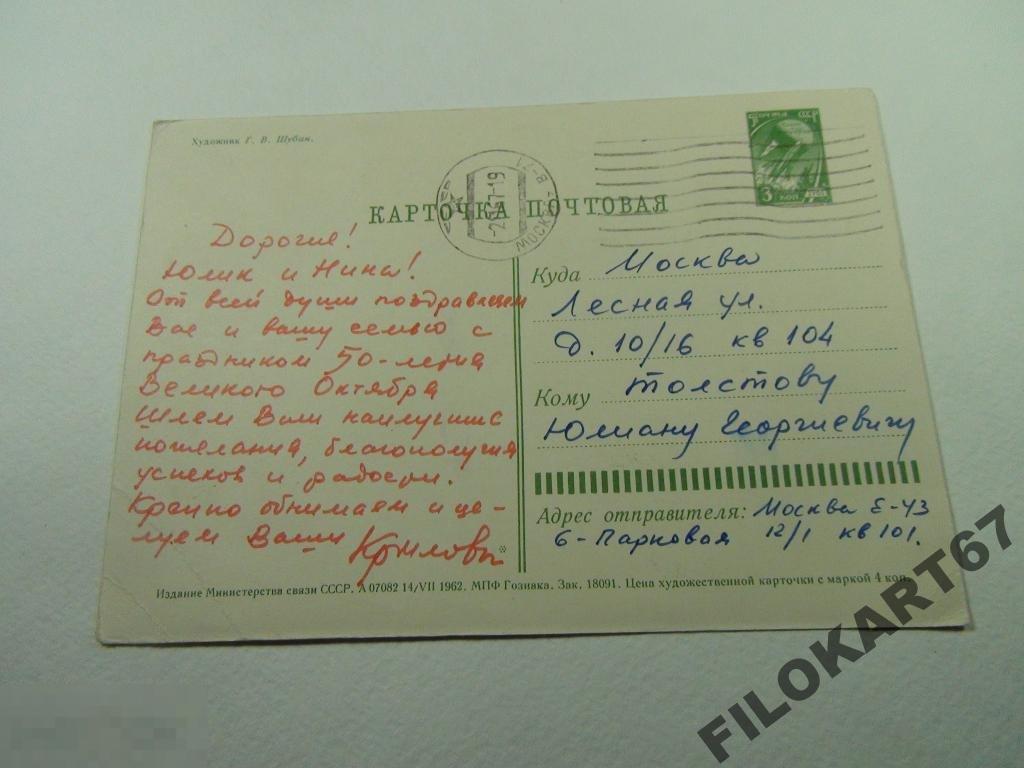 Художник Г. В. Шубин.
КАРТОЧКА ПОЧТОВАЯ
МОСКВА
3 коп
Дорогие!
Юлик и Нина!
От всей души поздравляем
Вас и вашу семью с
праздником 50-летия
Великого Октября
Шлем Вам наилучшие
пожелания, благополучия
успехов и радости.
Крепко обнимаем и це-
луем Ваши Крыловы
Куда Москва
Лесная ул.
д. 10/16 кв 104
Кому Толстову
Юлиану Георгиевичу
Адрес отправителя: Москва Е-43
6-Парковая 12/1 кв 101.
Издание Министерства связи СССР. А 07082 14/VII 1962. МПФ Гознака. Зак. 18091. Цена художественной карточки с маркой 4 коп.
FILOKART67